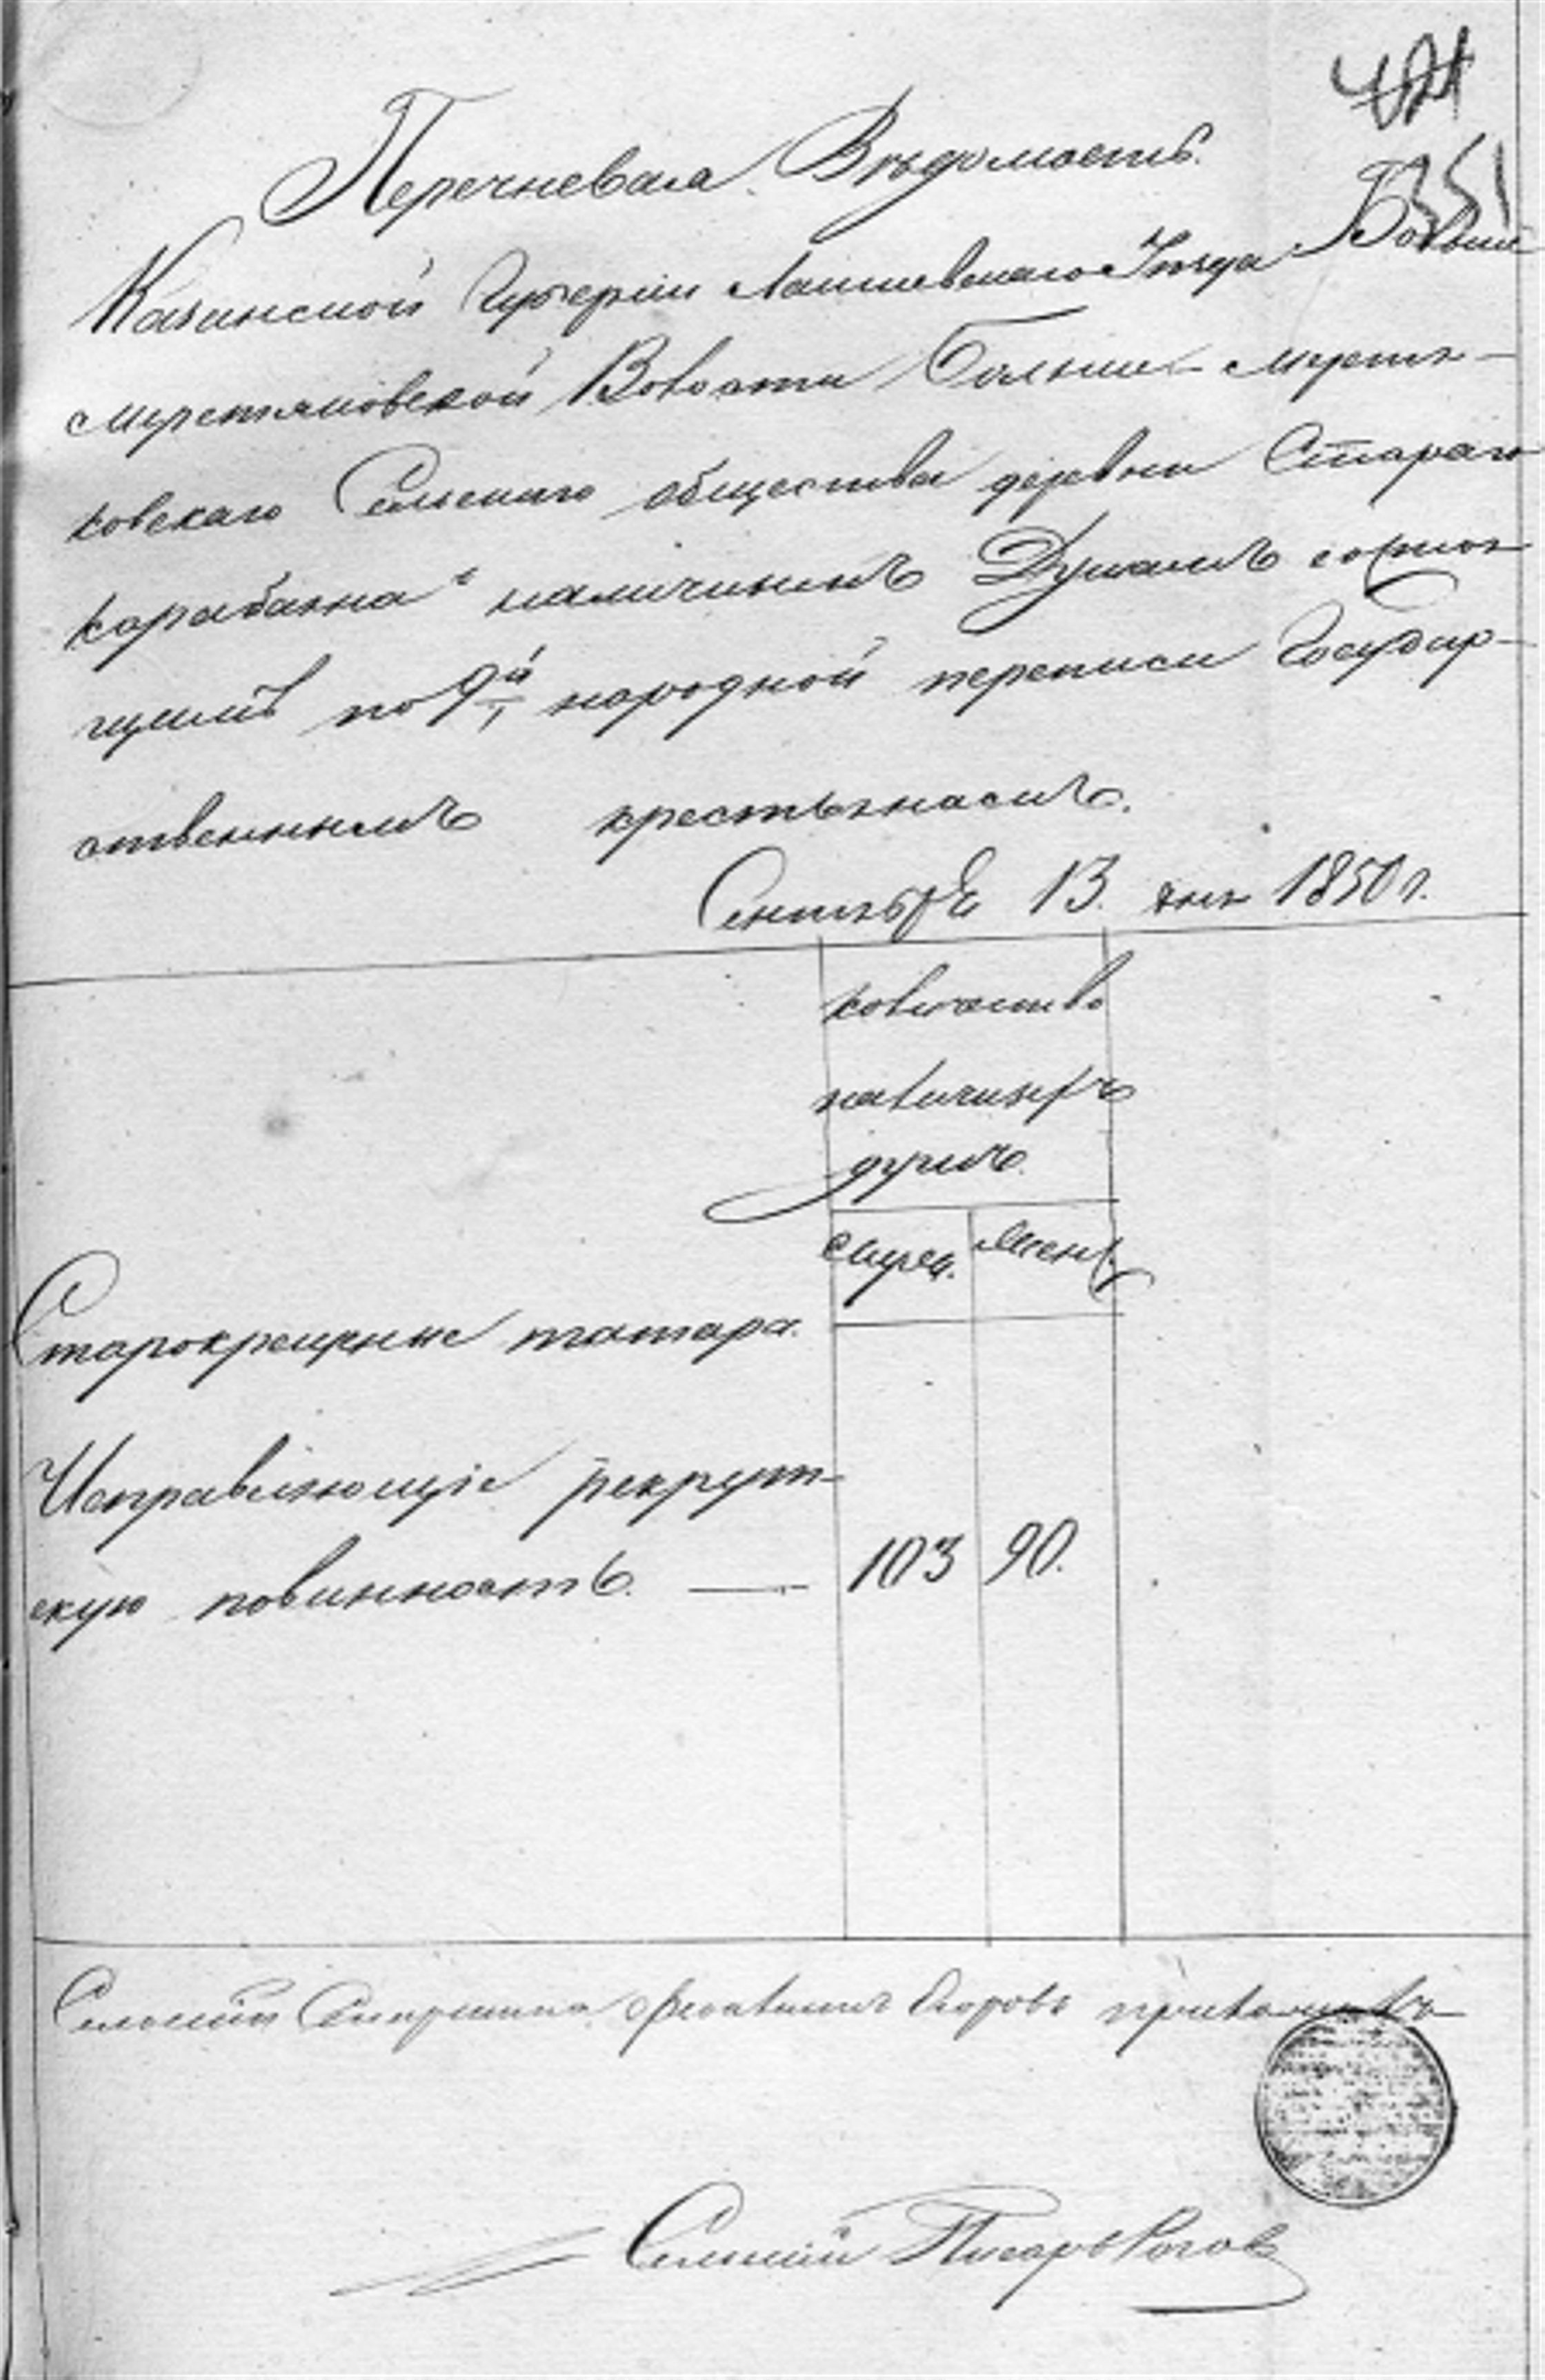 421
351
Перечневая Вѣдомость.
Казанской Губерніи Лаишевскаго Уѣзда Больше
меретяковской Волости Больше-мереть-
ковскаго Сельскаго общества деревни Стараго
карабаяна наличнымъ Душамъ состоя
щимъ по 9й народной переписи Государ-
ственнымъ крестьянамъ.
Сентября 13. дня 1850 г.
количество
наличныхъ
душъ.
муж. женс.
Старокрещеные татара.
Исправляющіе рекрут-
скую повинность. — 103 90.
Сельскій Старшина Егоровъ приложилъ
Сельскій Писарь Рогов